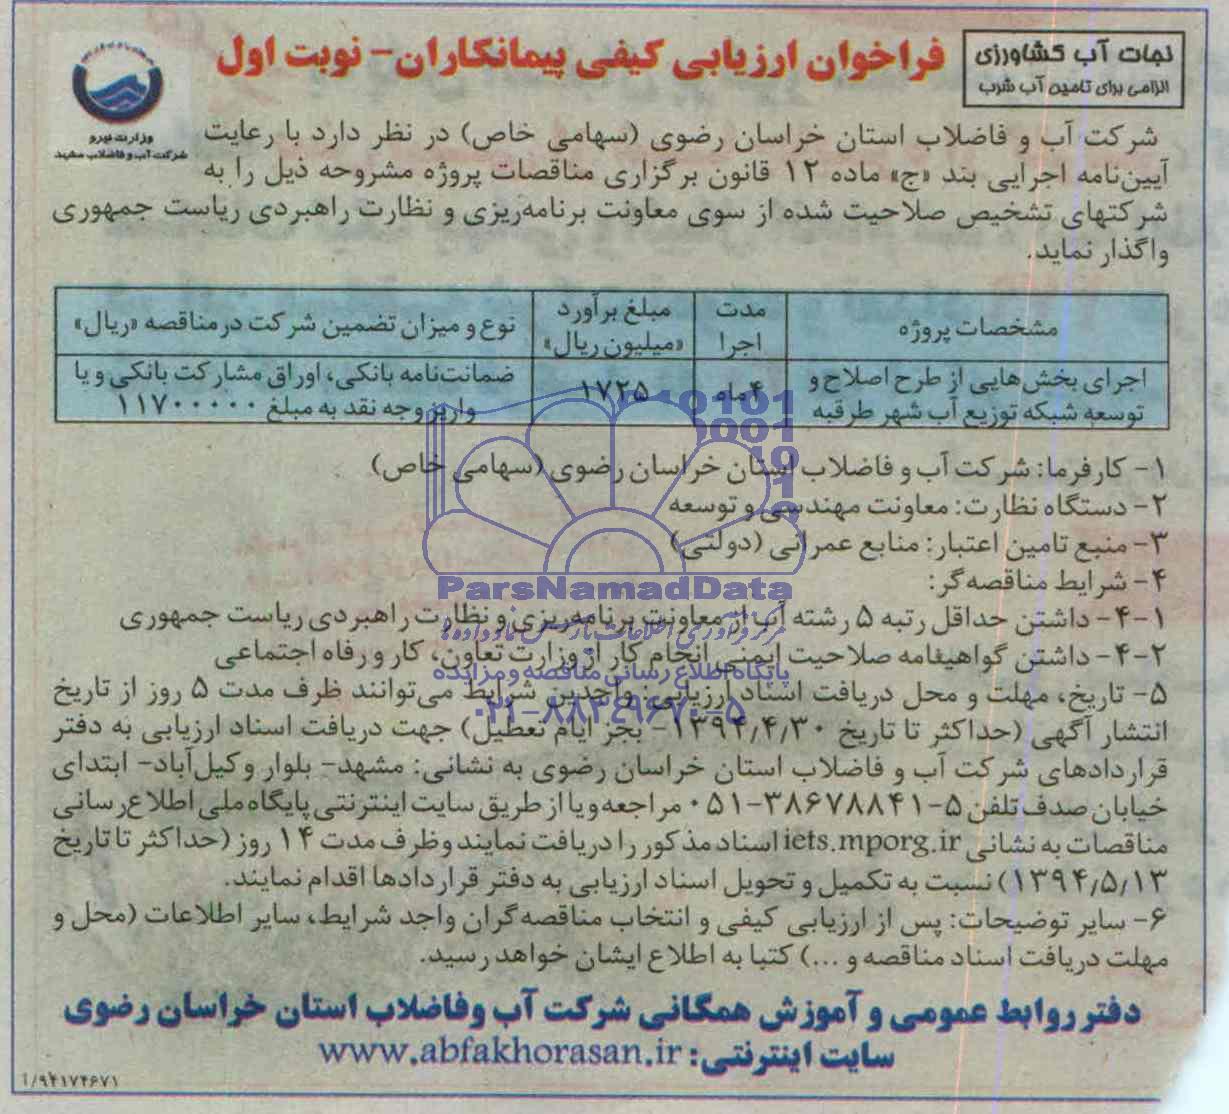 نجات آب کشاورزی
الزامی برای تامین آب شرب
فراخوان ارزیابی کیفی پیمانکاران- نوبت اول
وزارت نیرو
شرکت آب و فاضلاب مشهد
شرکت آب و فاضلاب استان خراسان رضوی (سهامی خاص) در نظر دارد با رعایت
آیین‌نامه اجرایی بند «ج» ماده ۱۲ قانون برگزاری مناقصات پروژه مشروحه ذیل را به
شرکتهای تشخیص صلاحیت شده از سوی معاونت برنامه‌ریزی و نظارت راهبردی ریاست جمهوری
واگذار نماید.
مشخصات پروژه
مدت اجرا
مبلغ برآورد «میلیون ریال»
نوع و میزان تضمین شرکت در مناقصه «ریال»
اجرای بخش‌هایی از طرح اصلاح و
توسعه شبکه توزیع آب شهر طرقبه
۴ماه
۱۷۲۵
ضمانت‌نامه بانکی، اوراق مشارکت بانکی و یا
واریز وجه نقد به مبلغ ۱۱۷۰۰۰۰۰۰
۱- کارفرما: شرکت آب و فاضلاب استان خراسان رضوی (سهامی خاص)
۲- دستگاه نظارت: معاونت مهندسی و توسعه
۳- منبع تامین اعتبار: منابع عمرانی (دولتی)
۴- شرایط مناقصه‌گر:
۴-۱- داشتن حداقل رتبه ۵ رشته آب از معاونت برنامه‌ریزی و نظارت راهبردی ریاست جمهوری
۴-۲- داشتن گواهینامه صلاحیت ایمنی انجام کار از وزارت تعاون، کار و رفاه اجتماعی
۵- تاریخ، مهلت و محل دریافت اسناد ارزیابی: واجدین شرایط می‌توانند ظرف مدت ۵ روز از تاریخ
انتشار آگهی (حداکثر تا تاریخ ۱۳۹۴٫۴٫۳۰- بجز ایام تعطیل) جهت دریافت اسناد ارزیابی به دفتر
قراردادهای شرکت آب و فاضلاب استان خراسان رضوی به نشانی: مشهد- بلوار وکیل‌آباد- ابتدای
خیابان صدف تلفن ۵-۳۸۶۷۸۸۴۱-۰۵۱ مراجعه و یا از طریق سایت اینترنتی پایگاه ملی اطلاع‌رسانی
مناقصات به نشانی iets.mporg.ir اسناد مذکور را دریافت نمایند و ظرف مدت ۱۴ روز (حداکثر تا تاریخ
۱۳۹۴٫۵٫۱۳) نسبت به تکمیل و تحویل اسناد ارزیابی به دفتر قراردادها اقدام نمایند.
۶- سایر توضیحات: پس از ارزیابی کیفی و انتخاب مناقصه‌گران واجد شرایط، سایر اطلاعات (محل و
مهلت دریافت اسناد مناقصه و ...) کتبا به اطلاع ایشان خواهد رسید.
دفتر روابط عمومی و آموزش همگانی شرکت آب و فاضلاب استان خراسان رضوی
سایت اینترنتی: www.abfakhorasan.ir
ParsNamadData
پایگاه اطلاع رسانی مناقصه و مزایده
۰۲۱-۸۸۳۴۹۶۷۰-۵
۹۴۱۷۴۶۷۱/آ